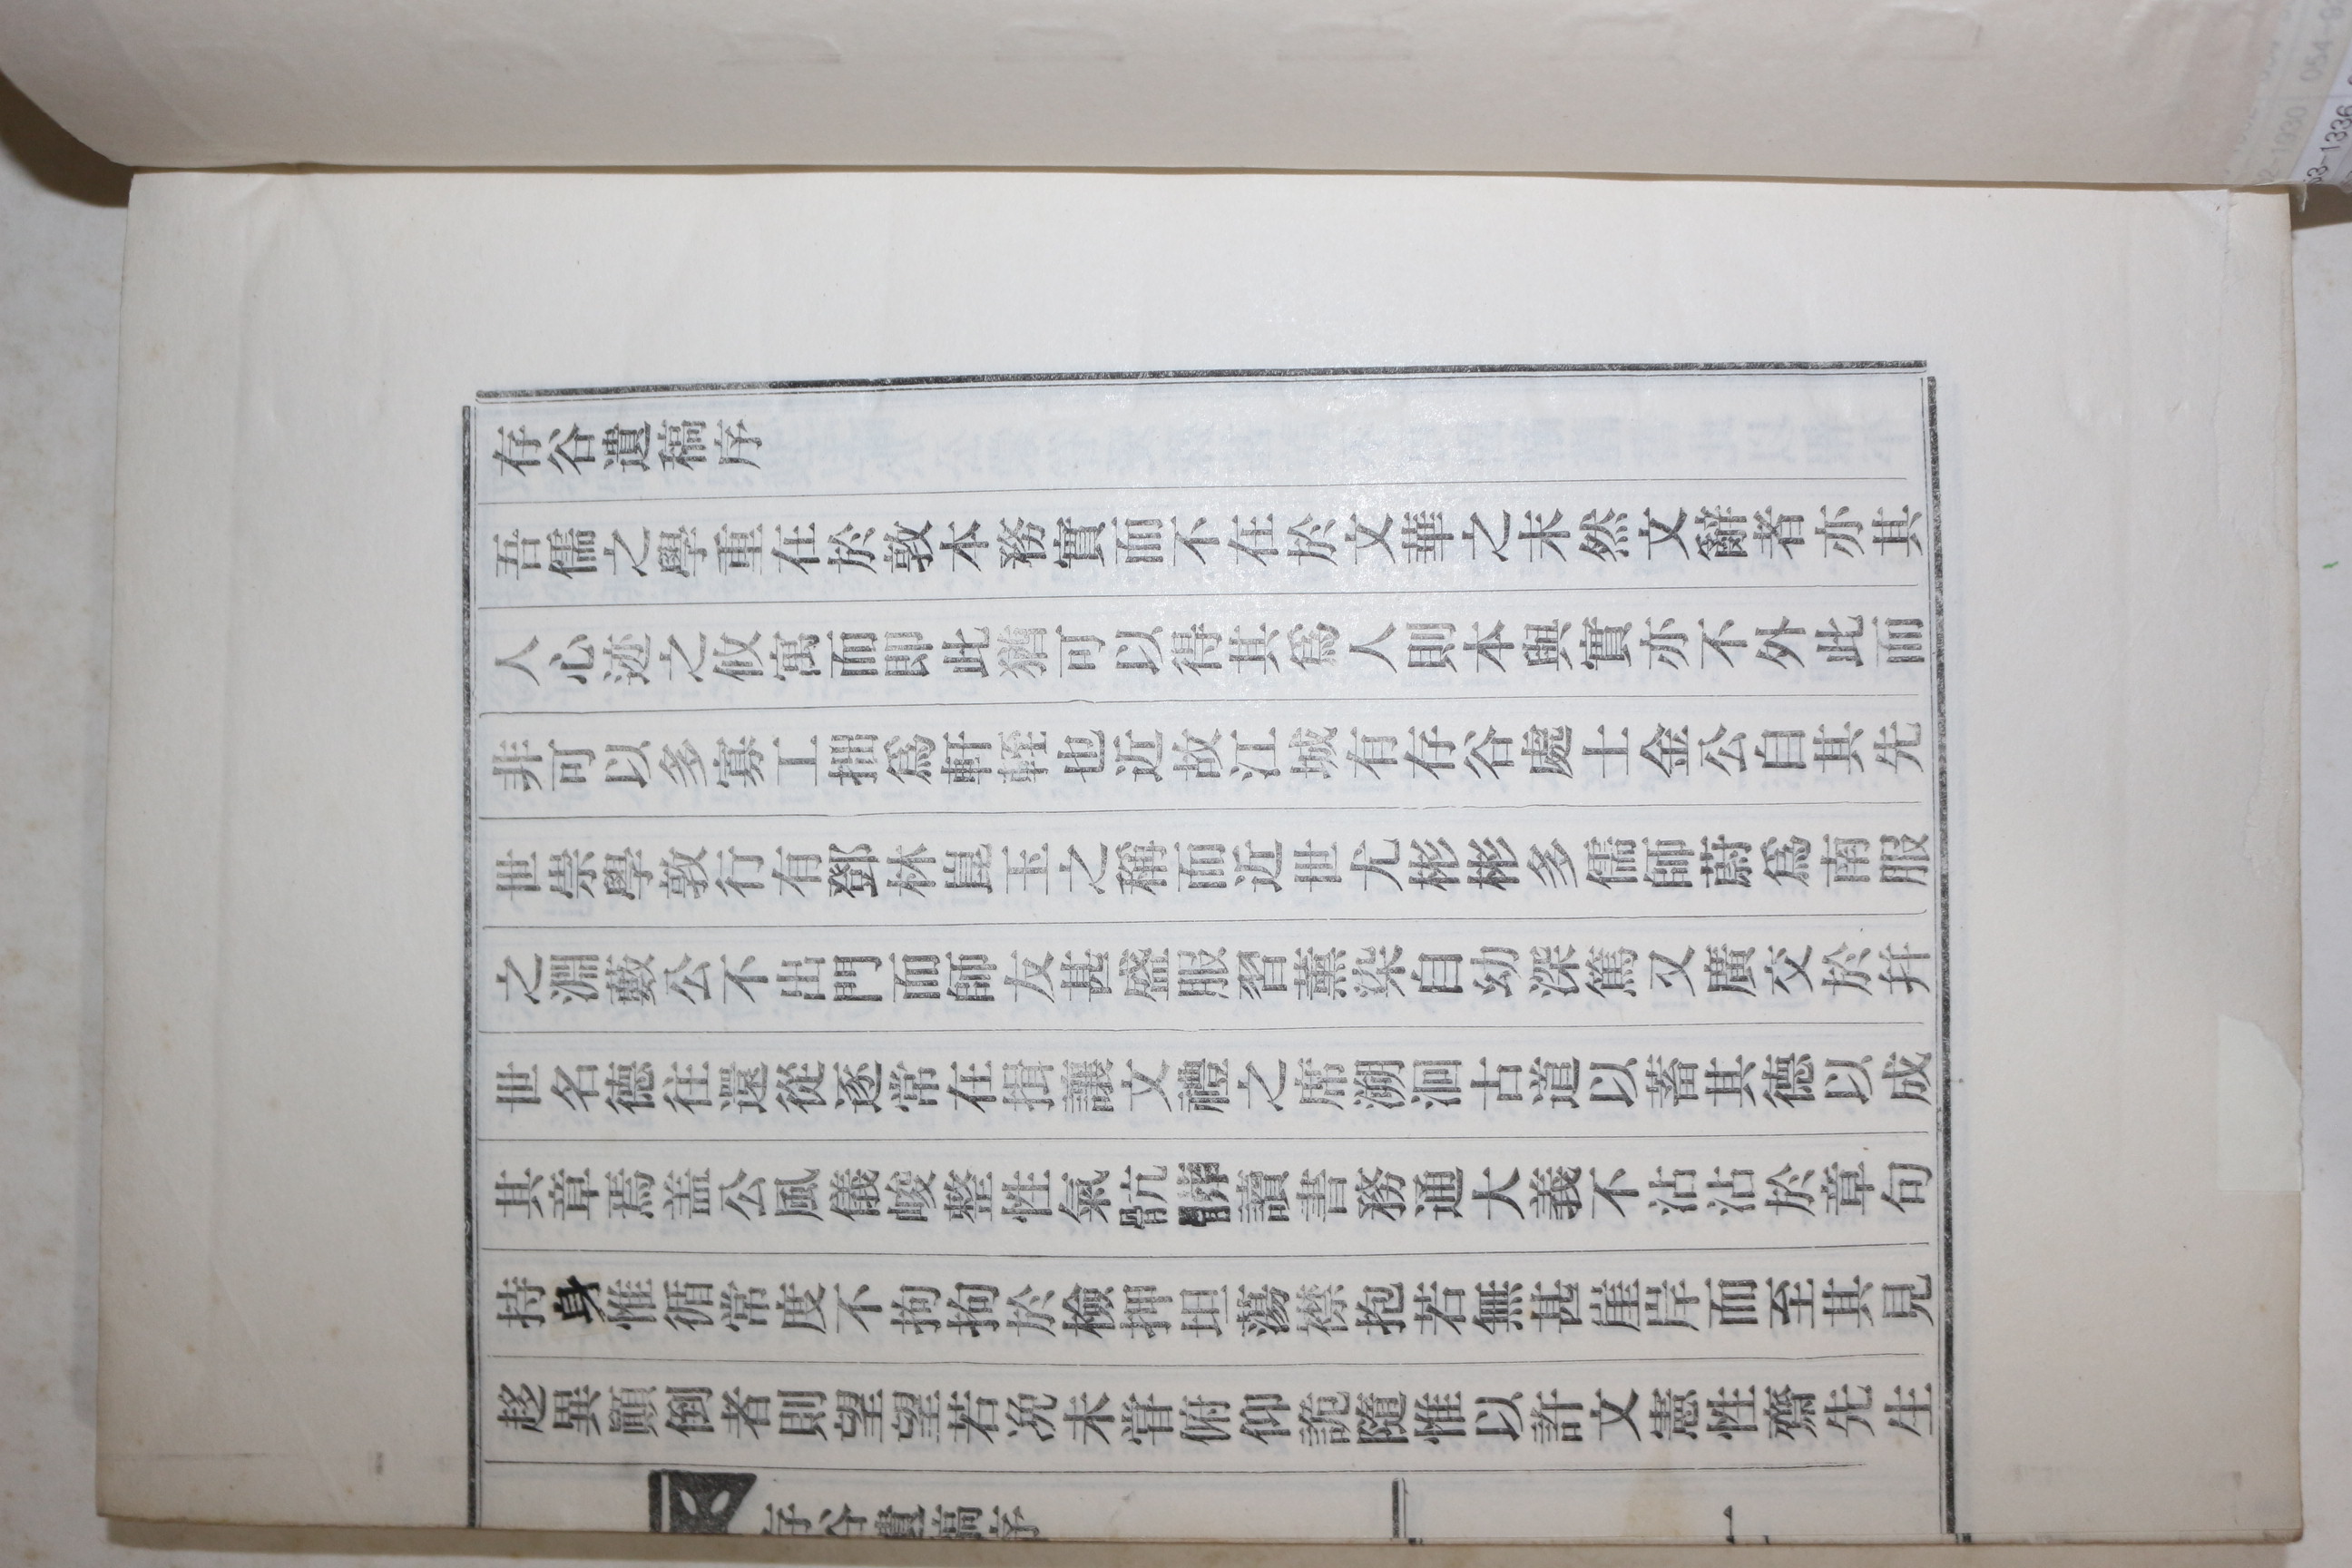 存谷遺稿序
吾儒之學重在於敦本務實而不在於文華之末然文辭者亦其
人心迹之攸寓而即此猶可以得其爲人則本與實亦不外此而
非可以多寡工拙爲軒輊也近故江城有存谷處士金公自其先
世崇學敦行有鄧林崑玉之稱而近世尤彬彬多儒師蔚爲南服
之淵藪公不出門而師友甚盛服習薰染自幼深篤又廣交於幷
世名德往還從逐常在揖讓文禮之席溯洄古道以蓄其德以成
其章焉盖公風儀峻整性氣骯髒讀書務通大義不沾沾於章句
持身惟循常度不拘拘於檢押坦蕩襟抱若無甚崖岸而至其見
趍異顚倒者則望望若浼未甞俯仰詭隨惟以許文憲性齋先生
存谷遺稿序